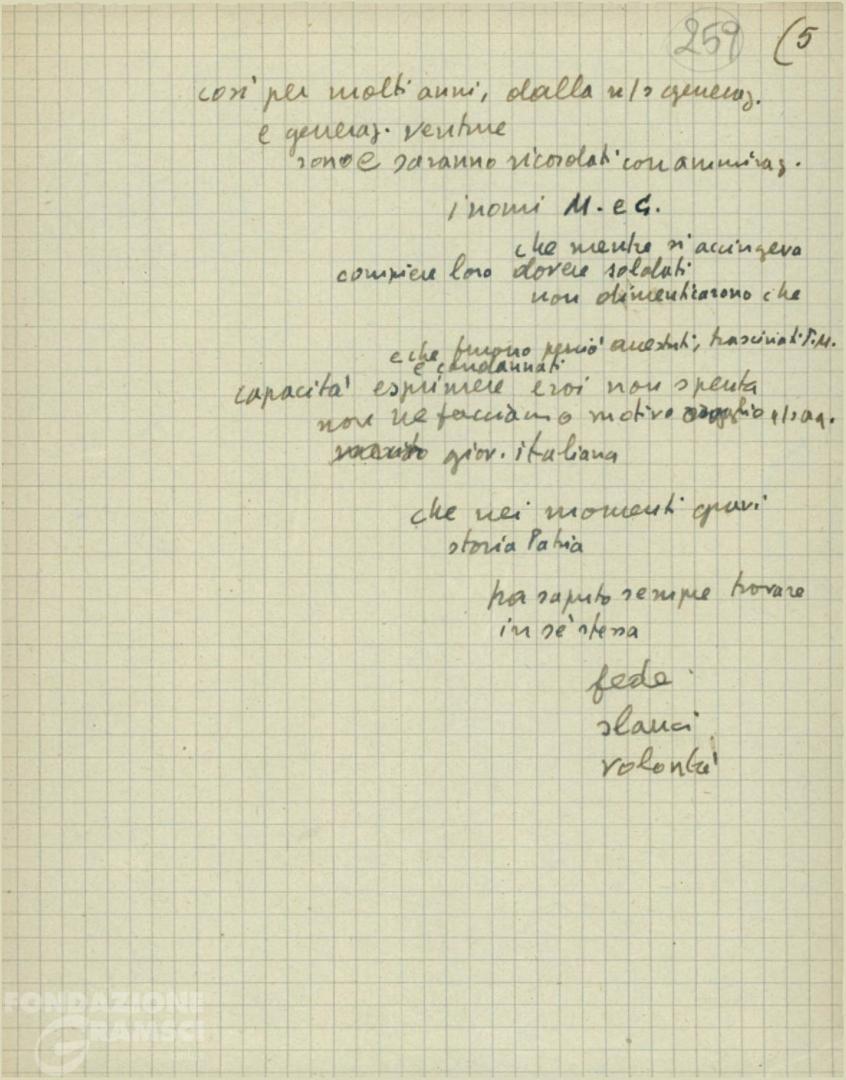 259 (5
così per molti anni, dalla n/s generaz.
e generaz. venture
sono e saranno ricordati con ammiraz.
i nomi M. e G.
che mentre si accingeva
compiere loro dovere soldati
non dimenticarono che
e che furono perciò arrestati, trascinati T.M.
e condannati
capacità esprimere eroi non spenta
non ne facciamo motivo orgoglio
giov. italiana
che nei momenti gravi
storia Patria
ha saputo sempre trovare
in sè stessa
fede
slanci
volontà
FONDAZIONE
GRAMSCI